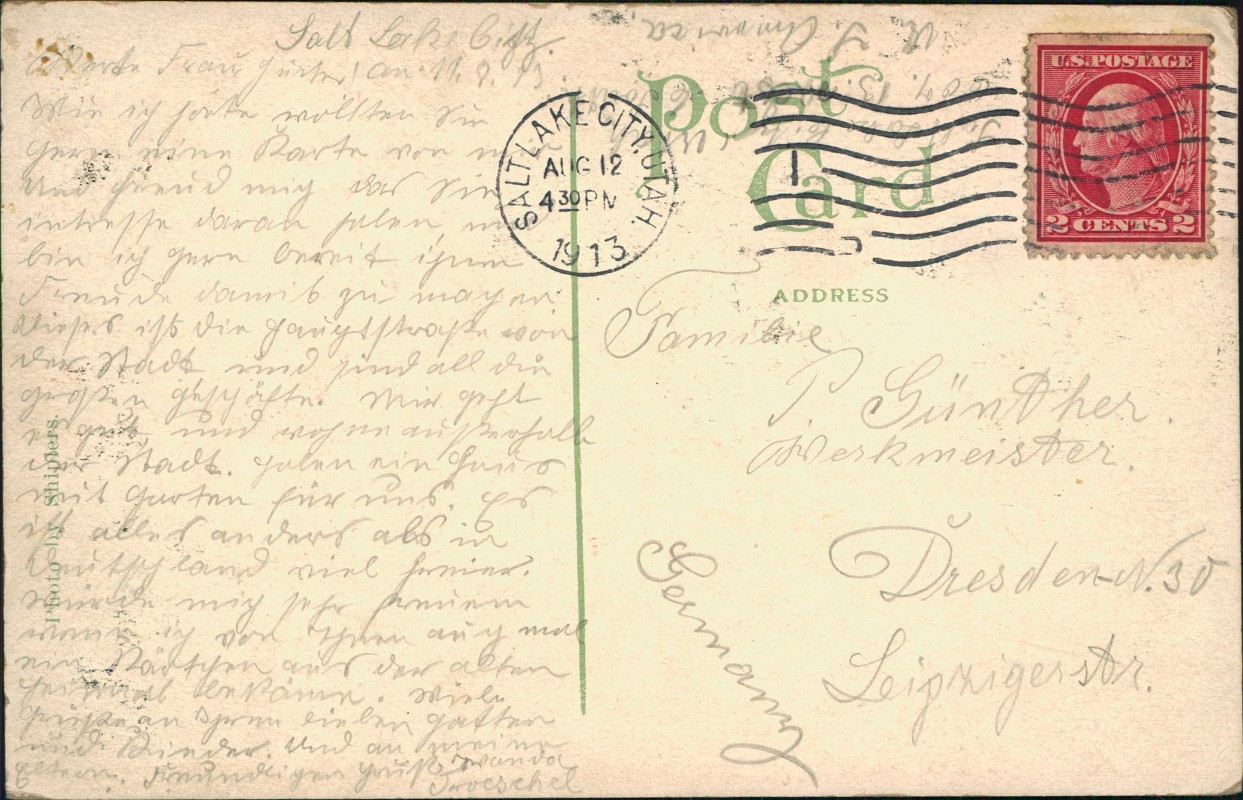 Salt Lake City.
Werte Frau Günther! am 11. 8. 13.
Wie ich hörte wollten Sie
gern eine Karte von mir
und freud mig das Sie
intresse daran haben, nun
bin ich gern bereit ihnen
Freude damit zu magen
Dieses ist die Hauptstraße von
der Stadt und sind all die
großen Geschäfte. Mir geht
es gut, und wohne außerhalb
der Stadt. haben ein Haus
mit Garten für uns. Es
ist alles anders als in
Deutschland viel freier.
würde mig sehr freuen
wenn ig von Ihnen aug mal
ein Kärtchen aus der alten
Heimat bekäme. Viele
Grüße an Ihren lieben Gatten
und Kinder. Und an meine
Eltern. Freundligen Gruß, Wanda
Troeschel
Photo by Shipler's.
U. S. America
13.
Salt Lake City
Post
Card
SALT LAKE CITY, UTAH.
AUG 12
4 30 PM
1913
U.S. POSTAGE
2 CENTS 2
ADDRESS
Familie
P. Günther.
Werkmeister.
Dresden-N. 30
Leipzigerstr.
Germany